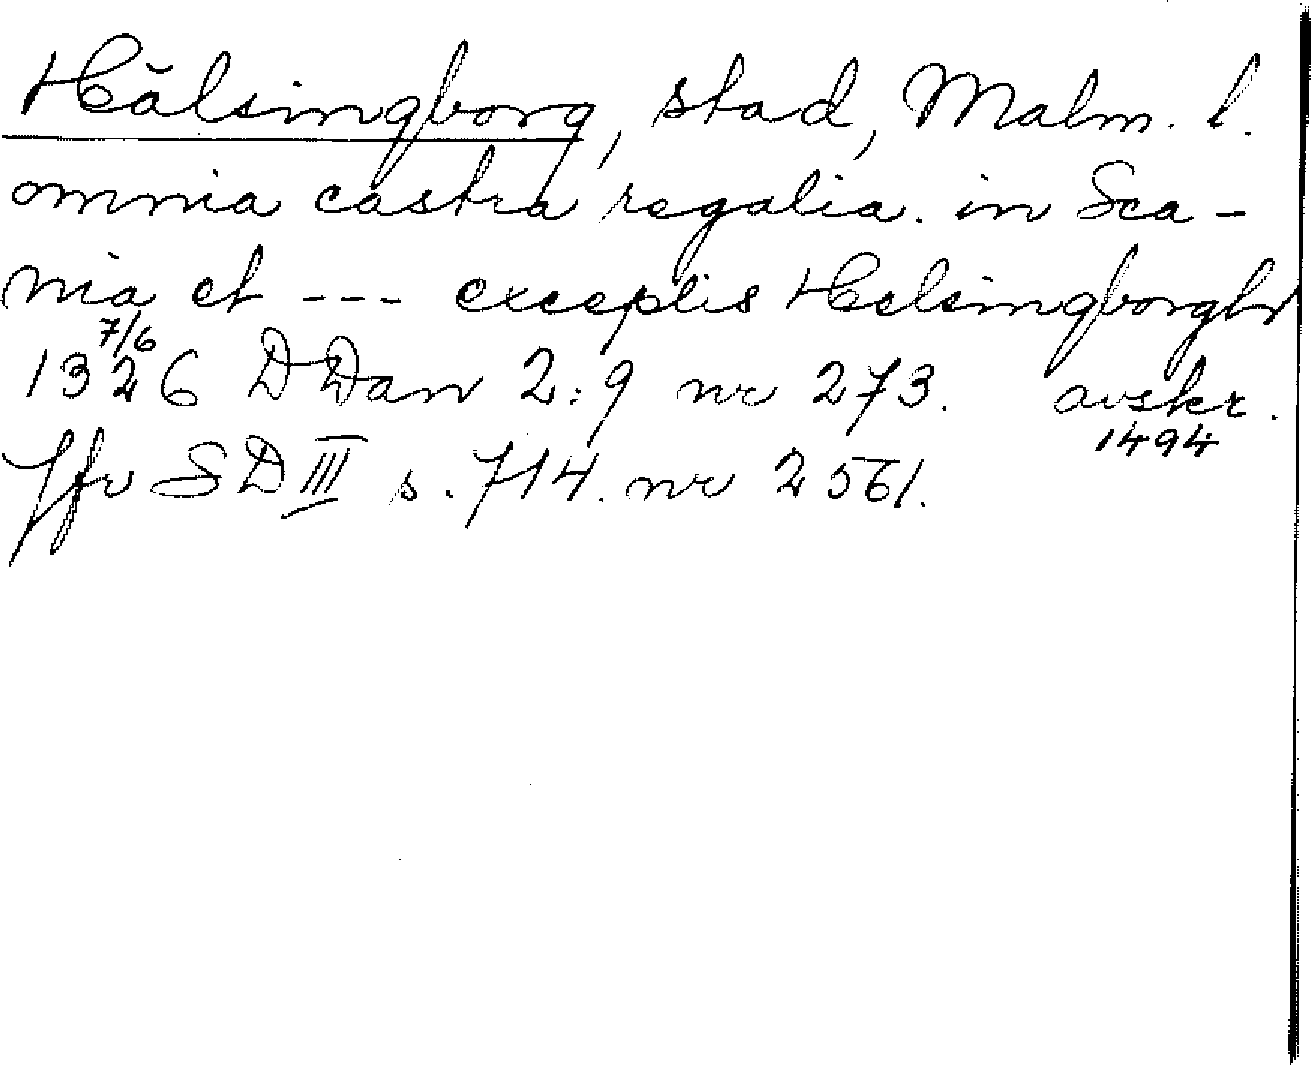 Hälsingborg, stad, Malm. l.
omnia castra regalia. in Sca-
nia et --- exceptis Helsingborgh
7/6
1326 DDan 2:9 nr 273. avskr.
1494
Jfr SD III s. 714. nr 2561.